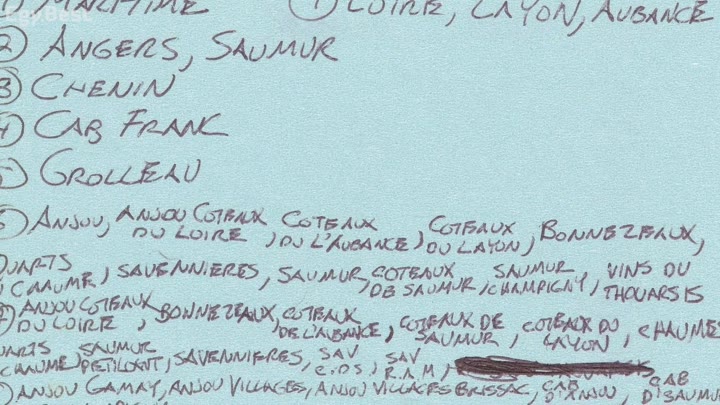 LgyBest
① MARITIME ① LOIRE, LAYON, AUBANCE
② ANGERS, SAUMUR
③ CHENIN
④ CAB FRANC
⑤ GROLLEAU
⑥ ANJOU, ANJOU COTEAUX DU LOIRE, COTEAUX DU L'AUBANCE, COTEAUX DU LAYON, BONNEZEAUX,
QUARTS CHAUME, SAVENNIERES, SAUMUR, COTEAUX DE SAUMUR, SAUMUR CHAMPIGNY, VINS DU THOUARSIS
⑦ ANJOU COTEAUX DU LOIRE, BONNEZEAUX, COTEAUX DE L'AUBANCE, COTEAUX DE SAUMUR, COTEAUX DU LAYON, CHAUMES
QUARTS CHAUME, SAUMUR PETILLANT, SAVENNIERES, SAV C.D.S, SAV R.A.M,
ANJOU GAMAY, ANJOU VILLAGES, ANJOU VILLAGES BRISSAC, CAB D'ANJOU, CAB D'SAUMUR